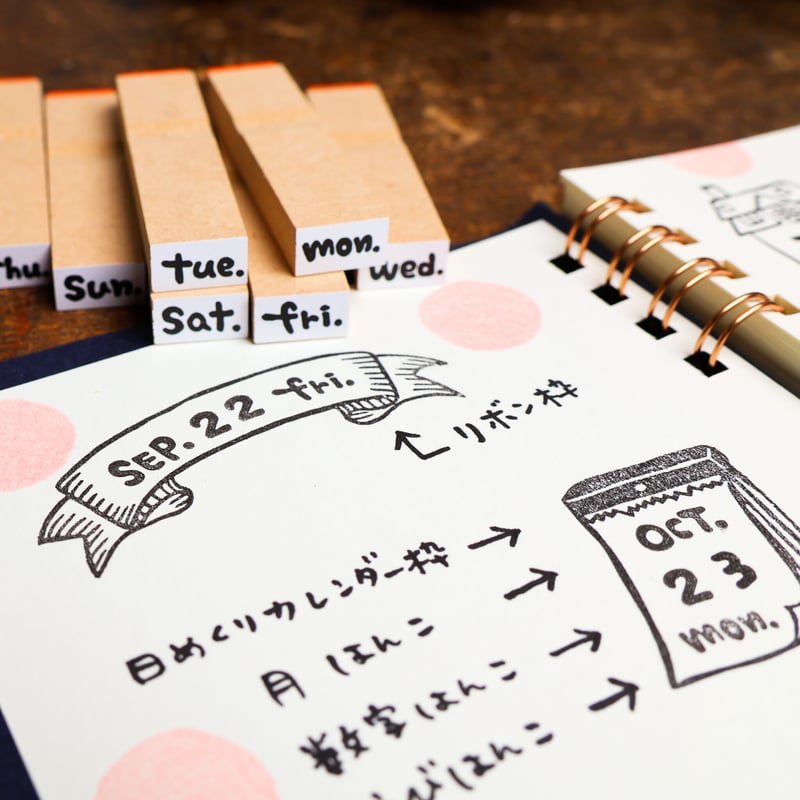 hu.
Sun.
tue.
mon.
wed.
Sat.
fri.
SEP. 22 fri.
リボン枠
OCT.
23
mon.
日めくりカレンダー枠
月はんこ
数字はんこ
びはんこ